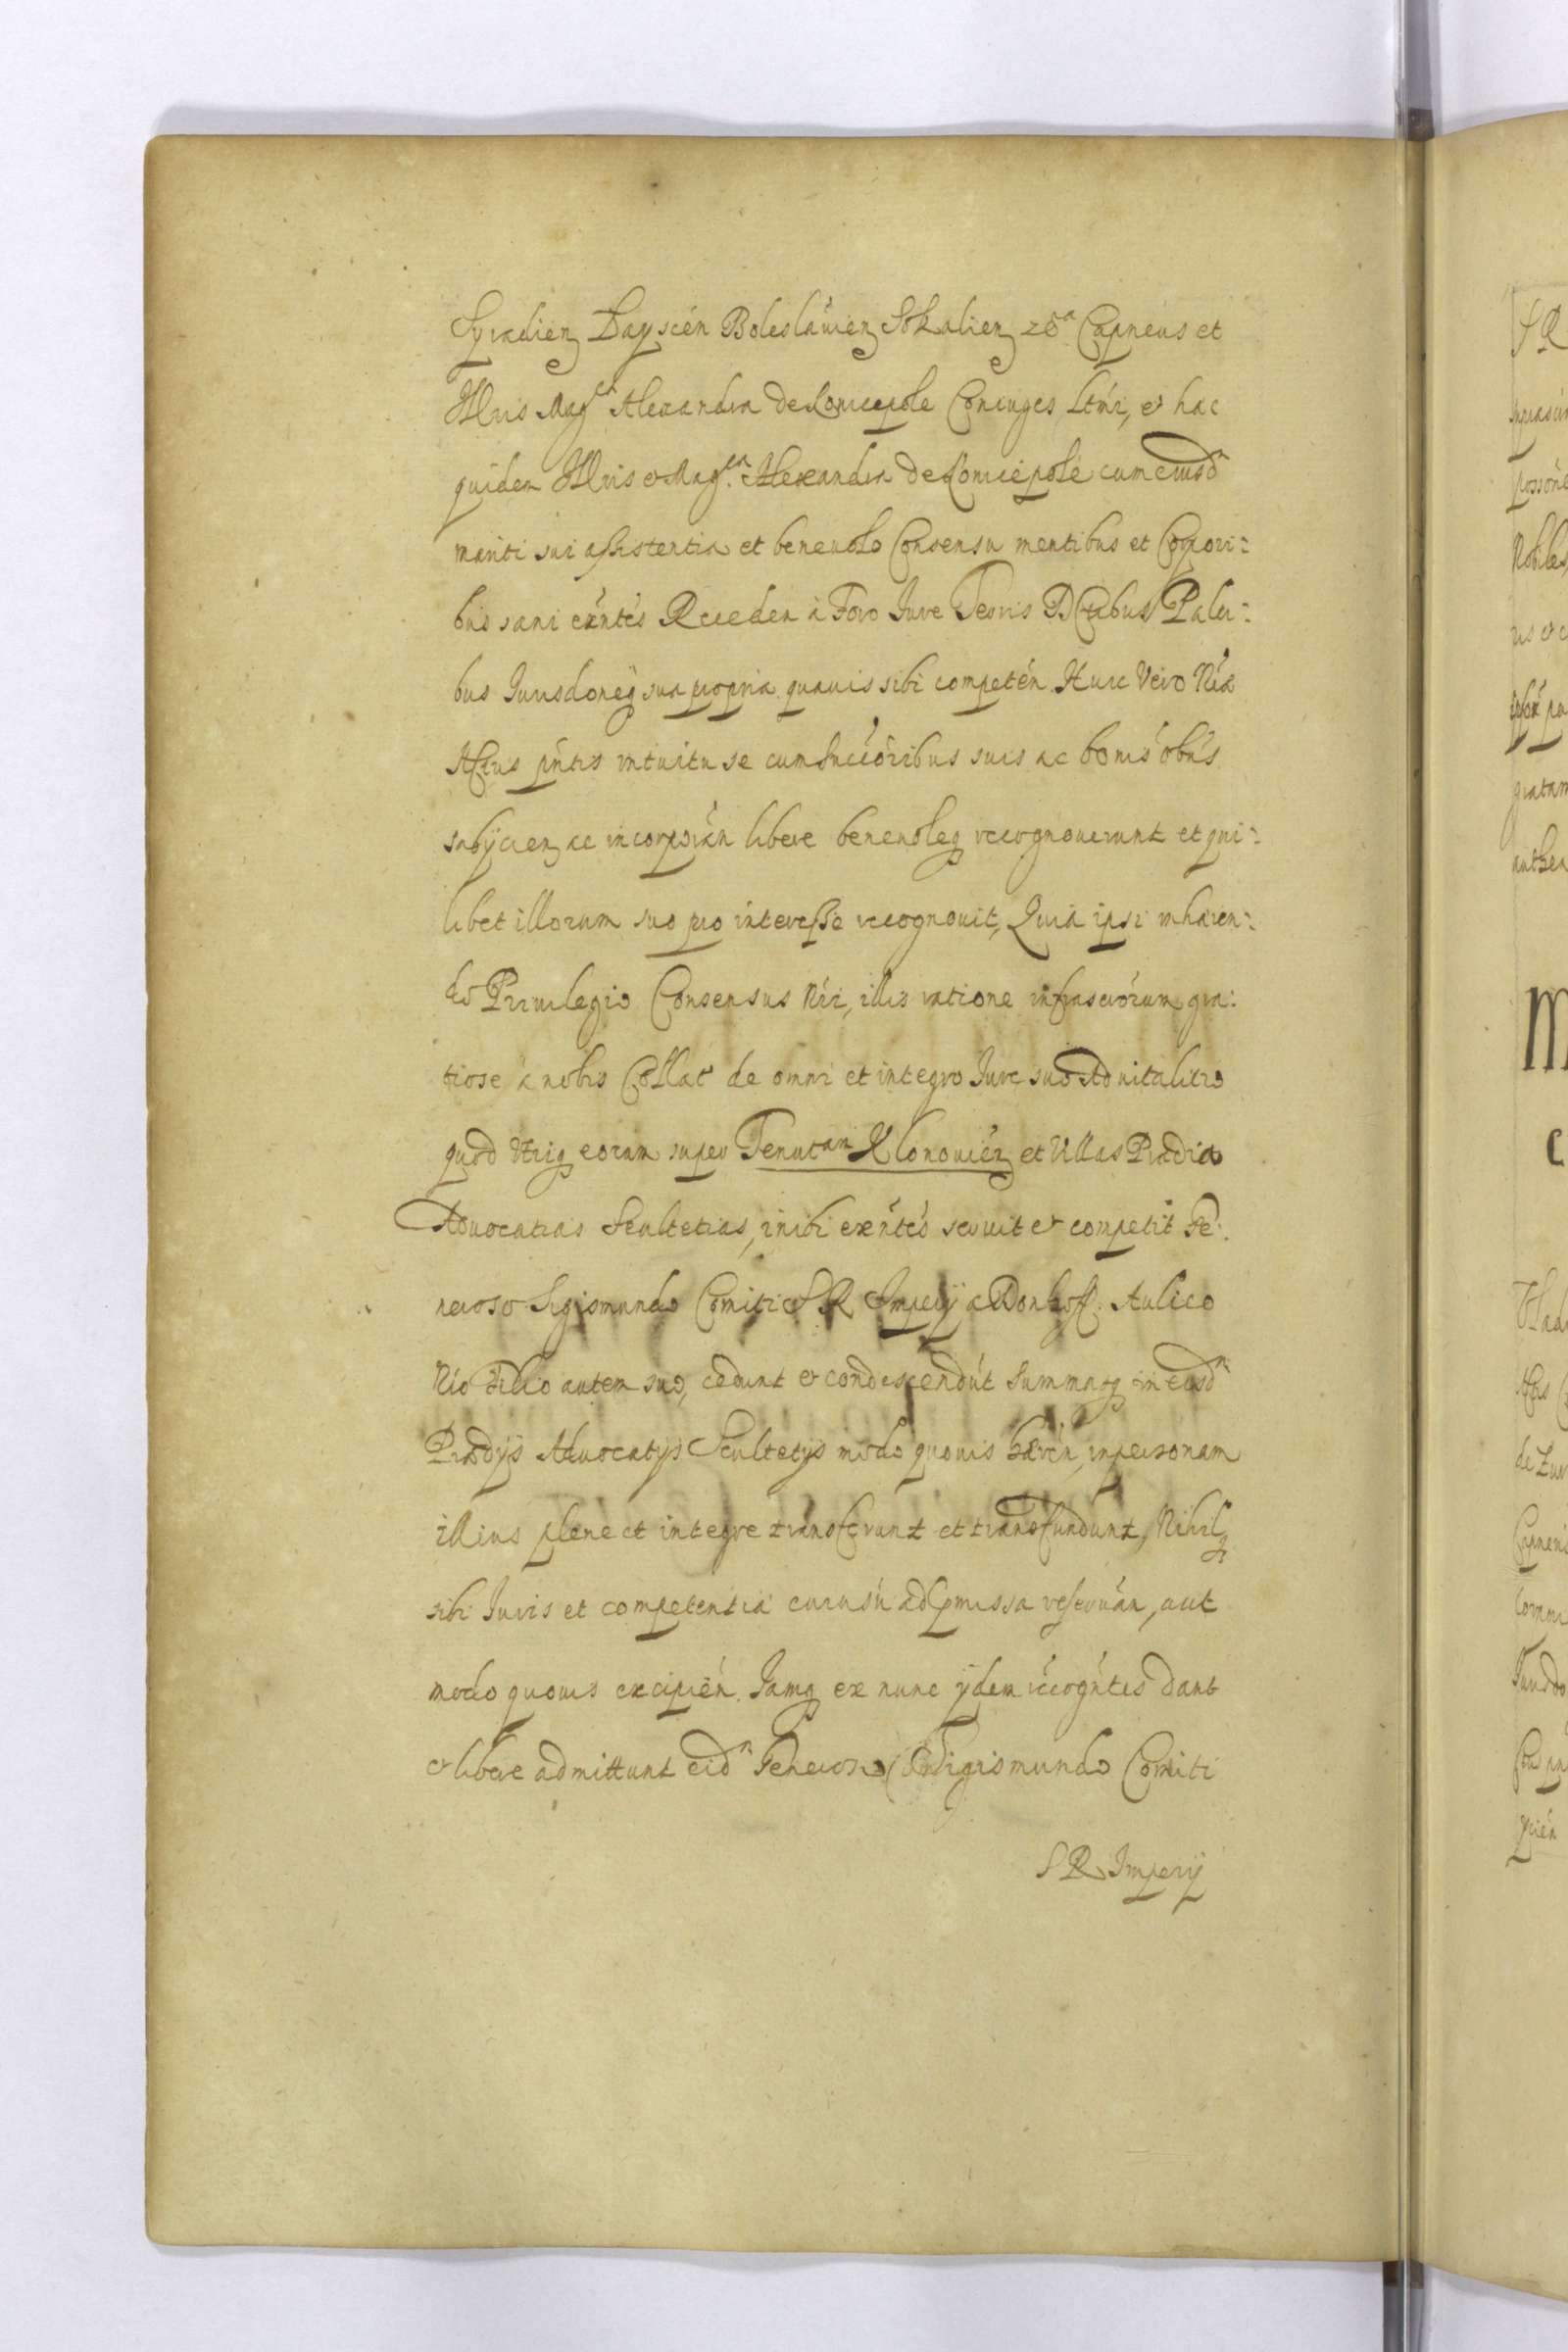 Syradień Bayscen Boleslauień Sokalień zcᵃ Capneus et
Illris Magᶜᵃ Alexandra de Koniecpole Coniuges Lt̃mi, et hac
quidem Illris et Magᶜᵃ Alexandra de Koniecpole cum eiusdᵐ
mariti sui assistentia et beneuolo Consensu mentibus et Corpori:
bus sani exñtes Receden à Foro Iure Terris Dctibus Pala:
bus Iurisdoneq sua propria quauis sibi competen. Huic Vero Nrã
Actus pñtis intuitu se cum Succoribus suis ac bonis obus
subycien ac incorporan libere beneuoleq recognouerunt et qui:
libet illorum suo pro interesse recognouit, Quia ipsi inhæren:
do Priuilegio Consensus Nri, illis ratione infrascrorum gra:
tiose a nobis Collat de omni et integro Iure suo Aduitalitio
quod Utriq eorum super Tenutam Klonouień et Villas Prædia
Aduocatias Scultetias, inibi exñtes seruit et competit Ge:
neroso Sigismundo Comiti S R Impery a Donhoff. Aulico
Nro Filio autem suo, cedunt et condescendut Summasq in eisdᵐ
Prædys Aduocatys Scultetys modo quouis hæren, in personam
illius plene et integre transferunt et transfundunt, Nihilq
sibi Iuris et competentiæ cuiusu ad pmissa reseruan, aut
modo quouis excipien. Iamq ex nunc ydem recogntes dant
et libere admittunt eidᵐ Generoso Sigismundo Comiti
S R Impery
S R
Nobiles
gratam
M
C